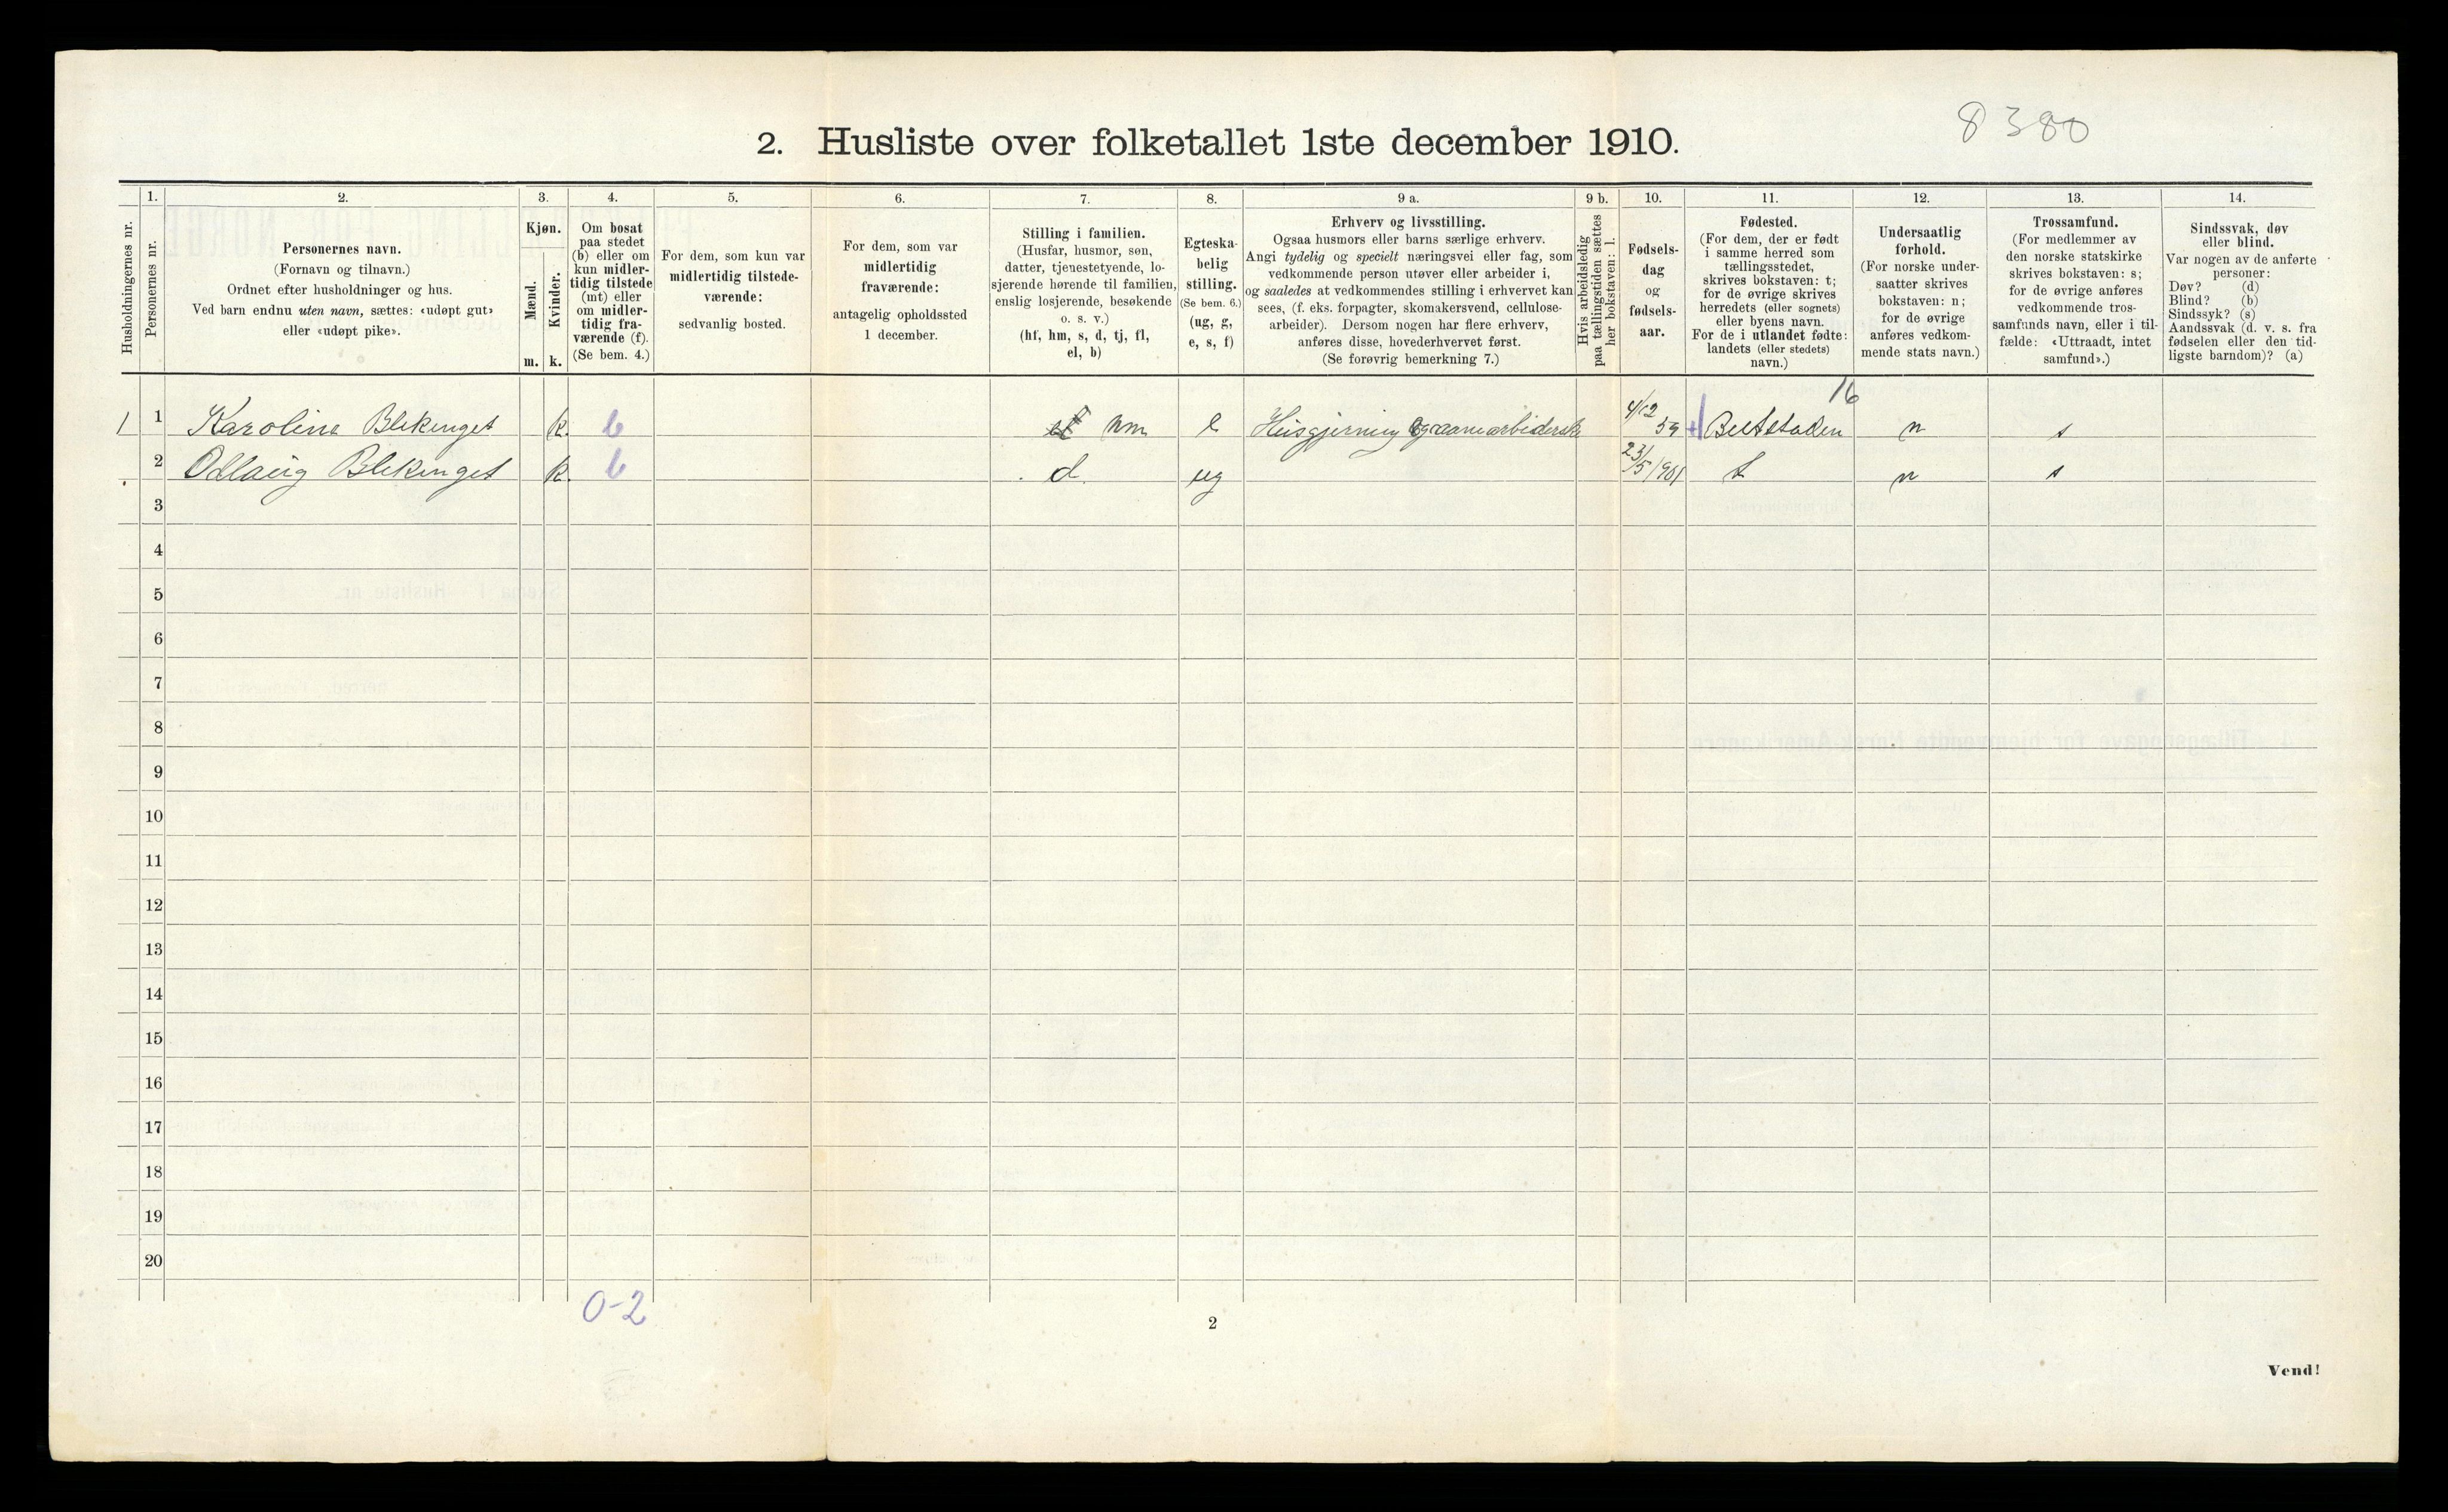 8380
2. Husliste over folketallet 1ste december 1910.
Husholdningernes nr.
1.
Personernes nr.
2.
Personernes navn.
(Fornavn og tilnavn.)
Ordnet efter husholdninger og hus.
Ved barn endnu uten navn, sættes: «udøpt gut»
eller «udøpt pike».
3.
Kjøn.
Mænd.
Kvinder.
m. k.
4.
Om bosat
paa stedet
(b) eller om
kun midler-
tidig tilstede
(mt) eller
om midler-
tidig fra-
værende (f).
(Se bem. 4.)
5.
For dem, som kun var
midlertidig tilstede-
værende:
sedvanlig bosted.
6.
For dem, som var
midlertidig
fraværende:
antagelig opholdssted
1 december.
7.
Stilling i familien.
(Husfar, husmor, søn,
datter, tjenestetyende, lo-
sjerende hørende til familien,
enslig losjerende, besøkende
o. s. v.)
(hf, hm, s, d, tj, fl,
el, b)
8.
Egteska-
belig
stilling.
(Se bem. 6.)
(ug, g,
e, s, f)
9 a.
Erhverv og livsstilling.
Ogsaa husmors eller barns særlige erhverv.
Angi tydelig og specielt næringsvei eller fag, som
vedkommende person utøver eller arbeider i,
og saaledes at vedkommendes stilling i erhvervet kan
sees, (f. eks. forpagter, skomakersvend, cellulose-
arbeider). Dersom nogen har flere erhverv,
anføres disse, hovederhvervet først.
(Se forøvrig bemerkning 7.)
9 b.
Hvis arbeidsledig
paa tællingstiden sættes
her bokstaven: l.
10.
Fødsels-
dag
og
fødsels-
aar.
11.
Fødested.
(For dem, der er født
i samme herred som
tællingsstedet,
skrives bokstaven: t;
for de øvrige skrives
herredets (eller sognets)
eller byens navn.
For de i utlandet fødte:
landets (eller stedets)
navn.)
12.
Undersaatlig
forhold.
(For norske under-
saatter skrives
bokstaven: n;
for de øvrige
anføres vedkom-
mende stats navn.)
13.
Trossamfund.
(For medlemmer av
den norske statskirke
skrives bokstaven: s;
for de øvrige anføres
vedkommende tros-
samfunds navn, eller i til-
fælde: «Uttraadt, intet
samfund».)
14.
Sindssvak, døv
eller blind.
Var nogen av de anførte
personer:
Døv? (d)
Blind? (b)
Sindssyk? (s)
Aandssvak (d. v. s. fra
fødselen eller den tid-
ligste barndom)? (a)
16
1 1 Karoline Blekenget k. b hm e Husgjerning 4/12 59 Beitstaden n s
2 Odlaug Blekenget k. b d. ug 23/5 1901 t n s
3
4
5
6
7
8
9
10
11
12
13
14
15
16
17
18
19
20
0-2
2
Vend!